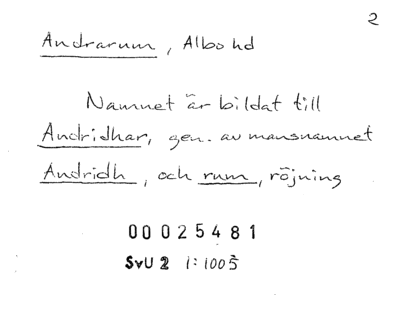 2
Andrarum, Albo hd
Namnet är bildat till
Andridhar, gen. av mansnamnet
Andridh, och rum, röjning
00025481
SvU 2 1:1005